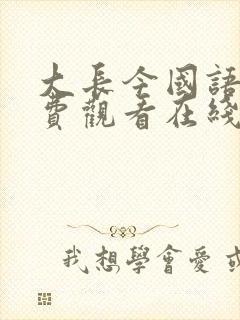 大長今國語
費觀看在綫
我想學會愛或